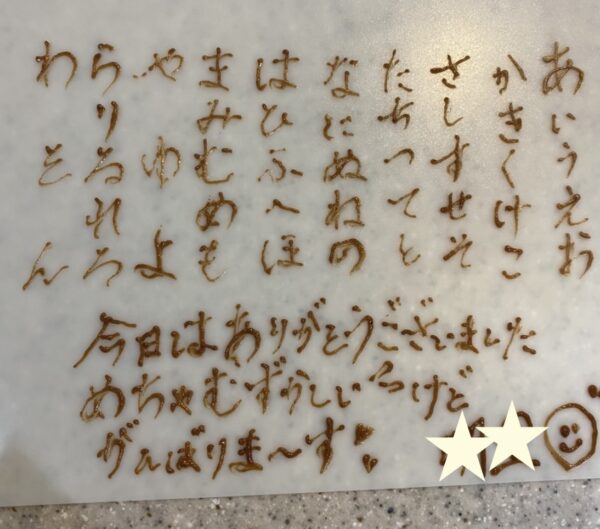 あいうえお
かきくけこ
さしすせそ
たちつてと
なにぬねの
はひふへほ
まみむめも
やゆよ
らりるれろ
わをん
今日はありがとうございました
めちゃむずかしいけど
がんばりま〜す